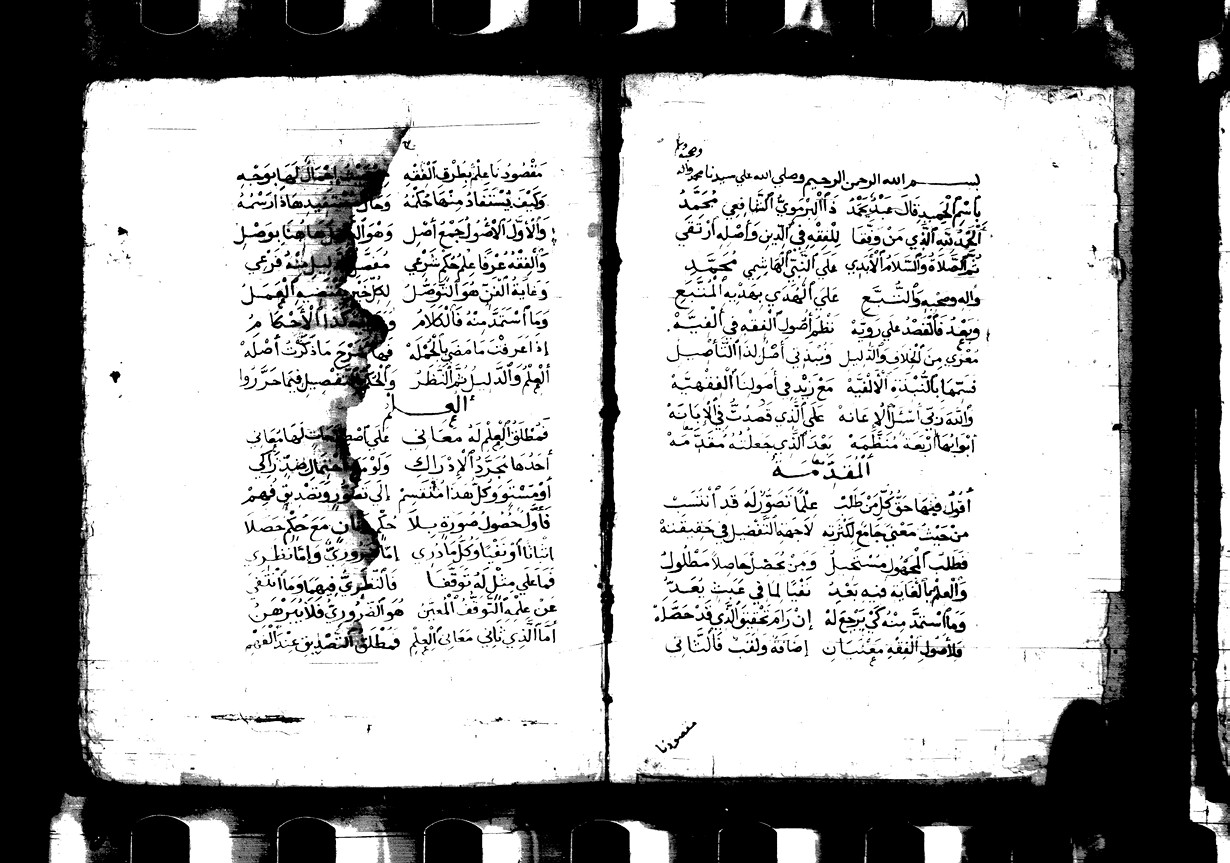 وصحبه وسلم
بسم الله الرحمن الرحيم وصلى الله على سيدنا محمد واله
باسم الحميد قال عبد محمد ذا البرموي الشافعي محمد
الحمد لله الذي من وفقا للفقه في الدين وأصله ارتقى
ثم الصلاة والسلام الأبدي على النبي الهاشمي محمد
واله وصحبه والتبع على الهدي بهديه المتبع
وبعد فالقصد على رويه نظم أصول الفقه في ألفيه
معرى من الخلاف والدليل ونبذتي أصل لذا التأصيل
فسمها بالنبذة الألفيه مع زيد في أصولنا الفقهيه
والله ربي أسئل الإعانه على الذي قصدت في الإبانه
أبوابها أربعة منتظمه بعد الذي جعلته مقدمه
المقدمة
أقول فيها حق كل من طلب علما تصور له قد انتسب
من حيث معنى جامع لكثرته لا جهة التفضيل في حقيقته
فطلب المجهول مستحيل ومن يحصل حاصلا مطلول
والعلم بالغاية فيه بعد نفيا لما في عبث يعد
وما استمد منه كي يرجع له إن رام تحقيق الذي قد حصله
فلأصول الفقه معنيان إضافة ولقب فالثاني
مقصودنا
مقصودنا علم بطرق الفقه إجمال لها بوجه
وكيف يستفاد منها حكمه وحال مستفيد هاذا رسمه
والأول الأصول جمع أصل وهو الدليل هاهنا بوصل
والفقه عرفا علم حكم شرعي مفصل الدليل منه فرعي
وغاية الفن هو التوصل لكل خير العمل
وما استمد منه فالكلام كذا الأحكام
إذا عرفت ما مضى بالجمله فهاك شرح ما ذكرت أصله
العلم والدليل ثم النظر والحكم التفصيل فيما حرروا
العلم
فمطلق العلم له معاني على اصطلاحات لها معاني
أحدها مجرد الإدراك ولو مع احتمال ضد زاكي
أو مستو وكل هذا منقسم إلى تصور وتصديق فهم
فأول حصول صورة بلا حكم وثان مع حكم حصلا
إثباتا أو نفيا وكل ما دري إما ضروري وإما نظري
فما على مثل له توقفا فالنظري فيهما وما انتفى
عن علمه التوقف المعين هو الضروري فلا يبرهن
أما الذي ثاني معاني العلم فمطلق التصديق عند الفهم